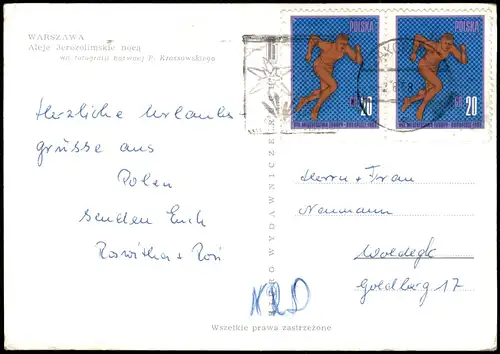 WARSZAWA
Aleje Jerozolimskie nocą
wg fotografii barwnej P. Krassowskiego
POLSKA
POLSKA
20
GR 20
Herzliche Urlaubs-
grüsse aus
Polen
senden Euch
Roswitha +
Herrn + Frau
Naumann
Woldegk
Goldberg 17
NRD
BIURO WYDAWNICZE RUCH
Wszelkie prawa zastrzeżone